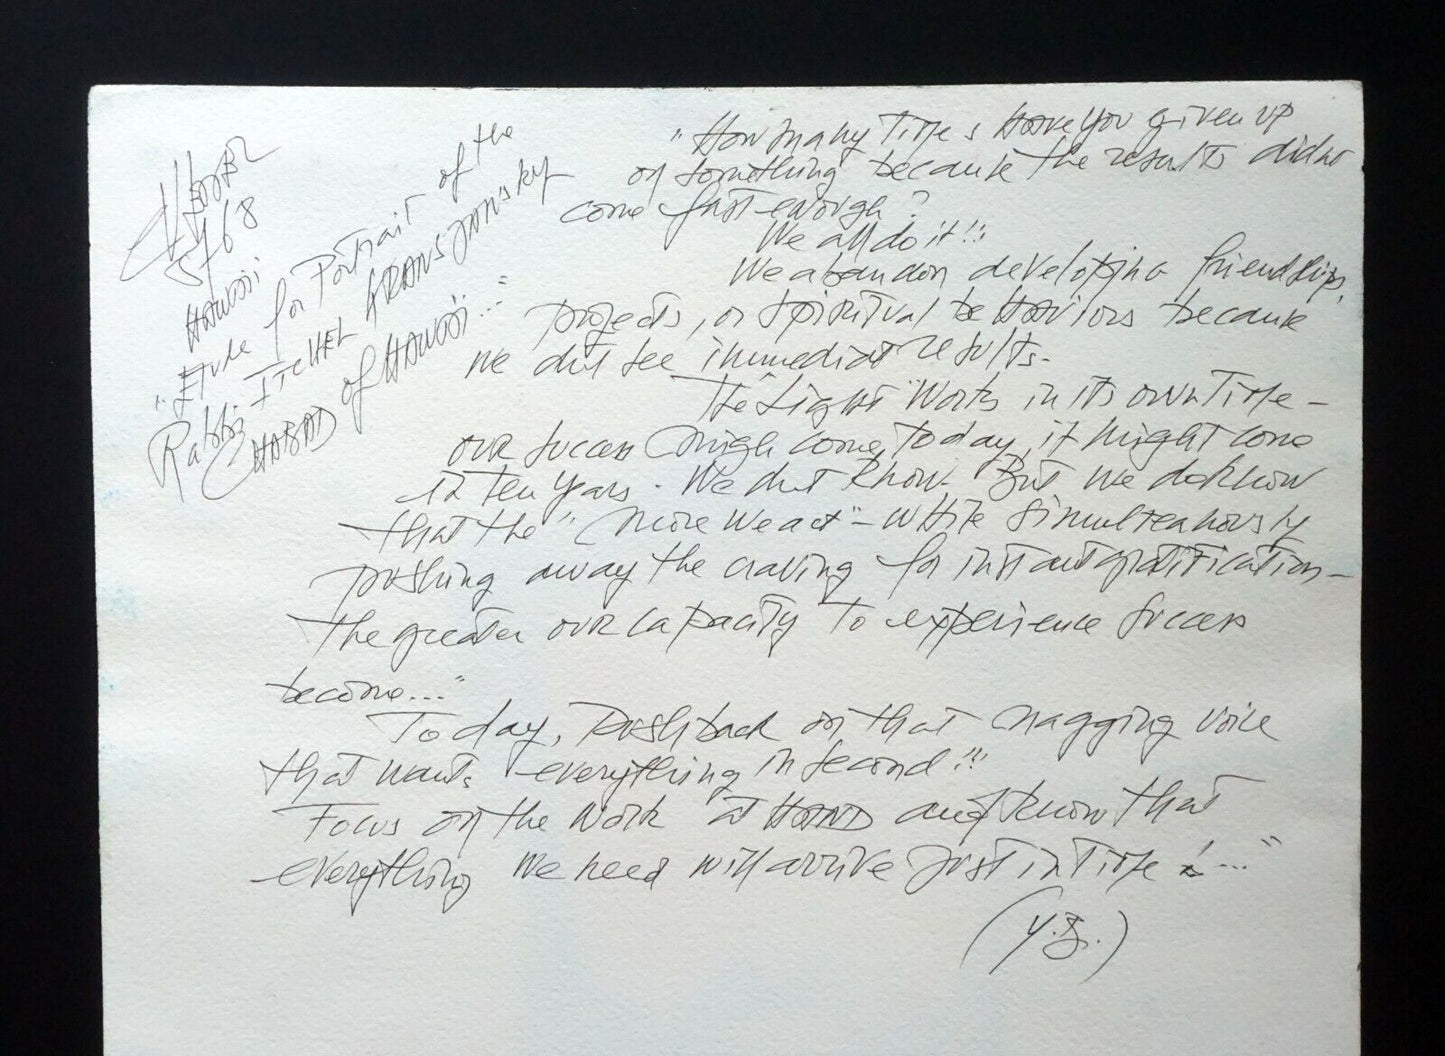 5768
HAWAII
"ETUDE for Portrait of the
Rabbi ITCHEL KRANSJANSKY
CHABAD of HAWAII..."
"How many Times Have you given up
on something because the results didnt
come fast enough?
We all do it!!!
We abandon developing friendships,
projects, or spiritual beHAViors because
we dnt see immediat results.
The "Light" Works in its own Time –
our success migh come today, it might come
in Ten years. We dnt know. But we do know
that the "more we act" – While simulteanously
pushing away the craving for instant gratification –
the greater our capacity To experience success
become..."
Today, Push back on that nagging voice
that wants everything in second!!!
Focus on the work at HAND and know that
everything we need will arrive just in Time!..."
(Y.B.)